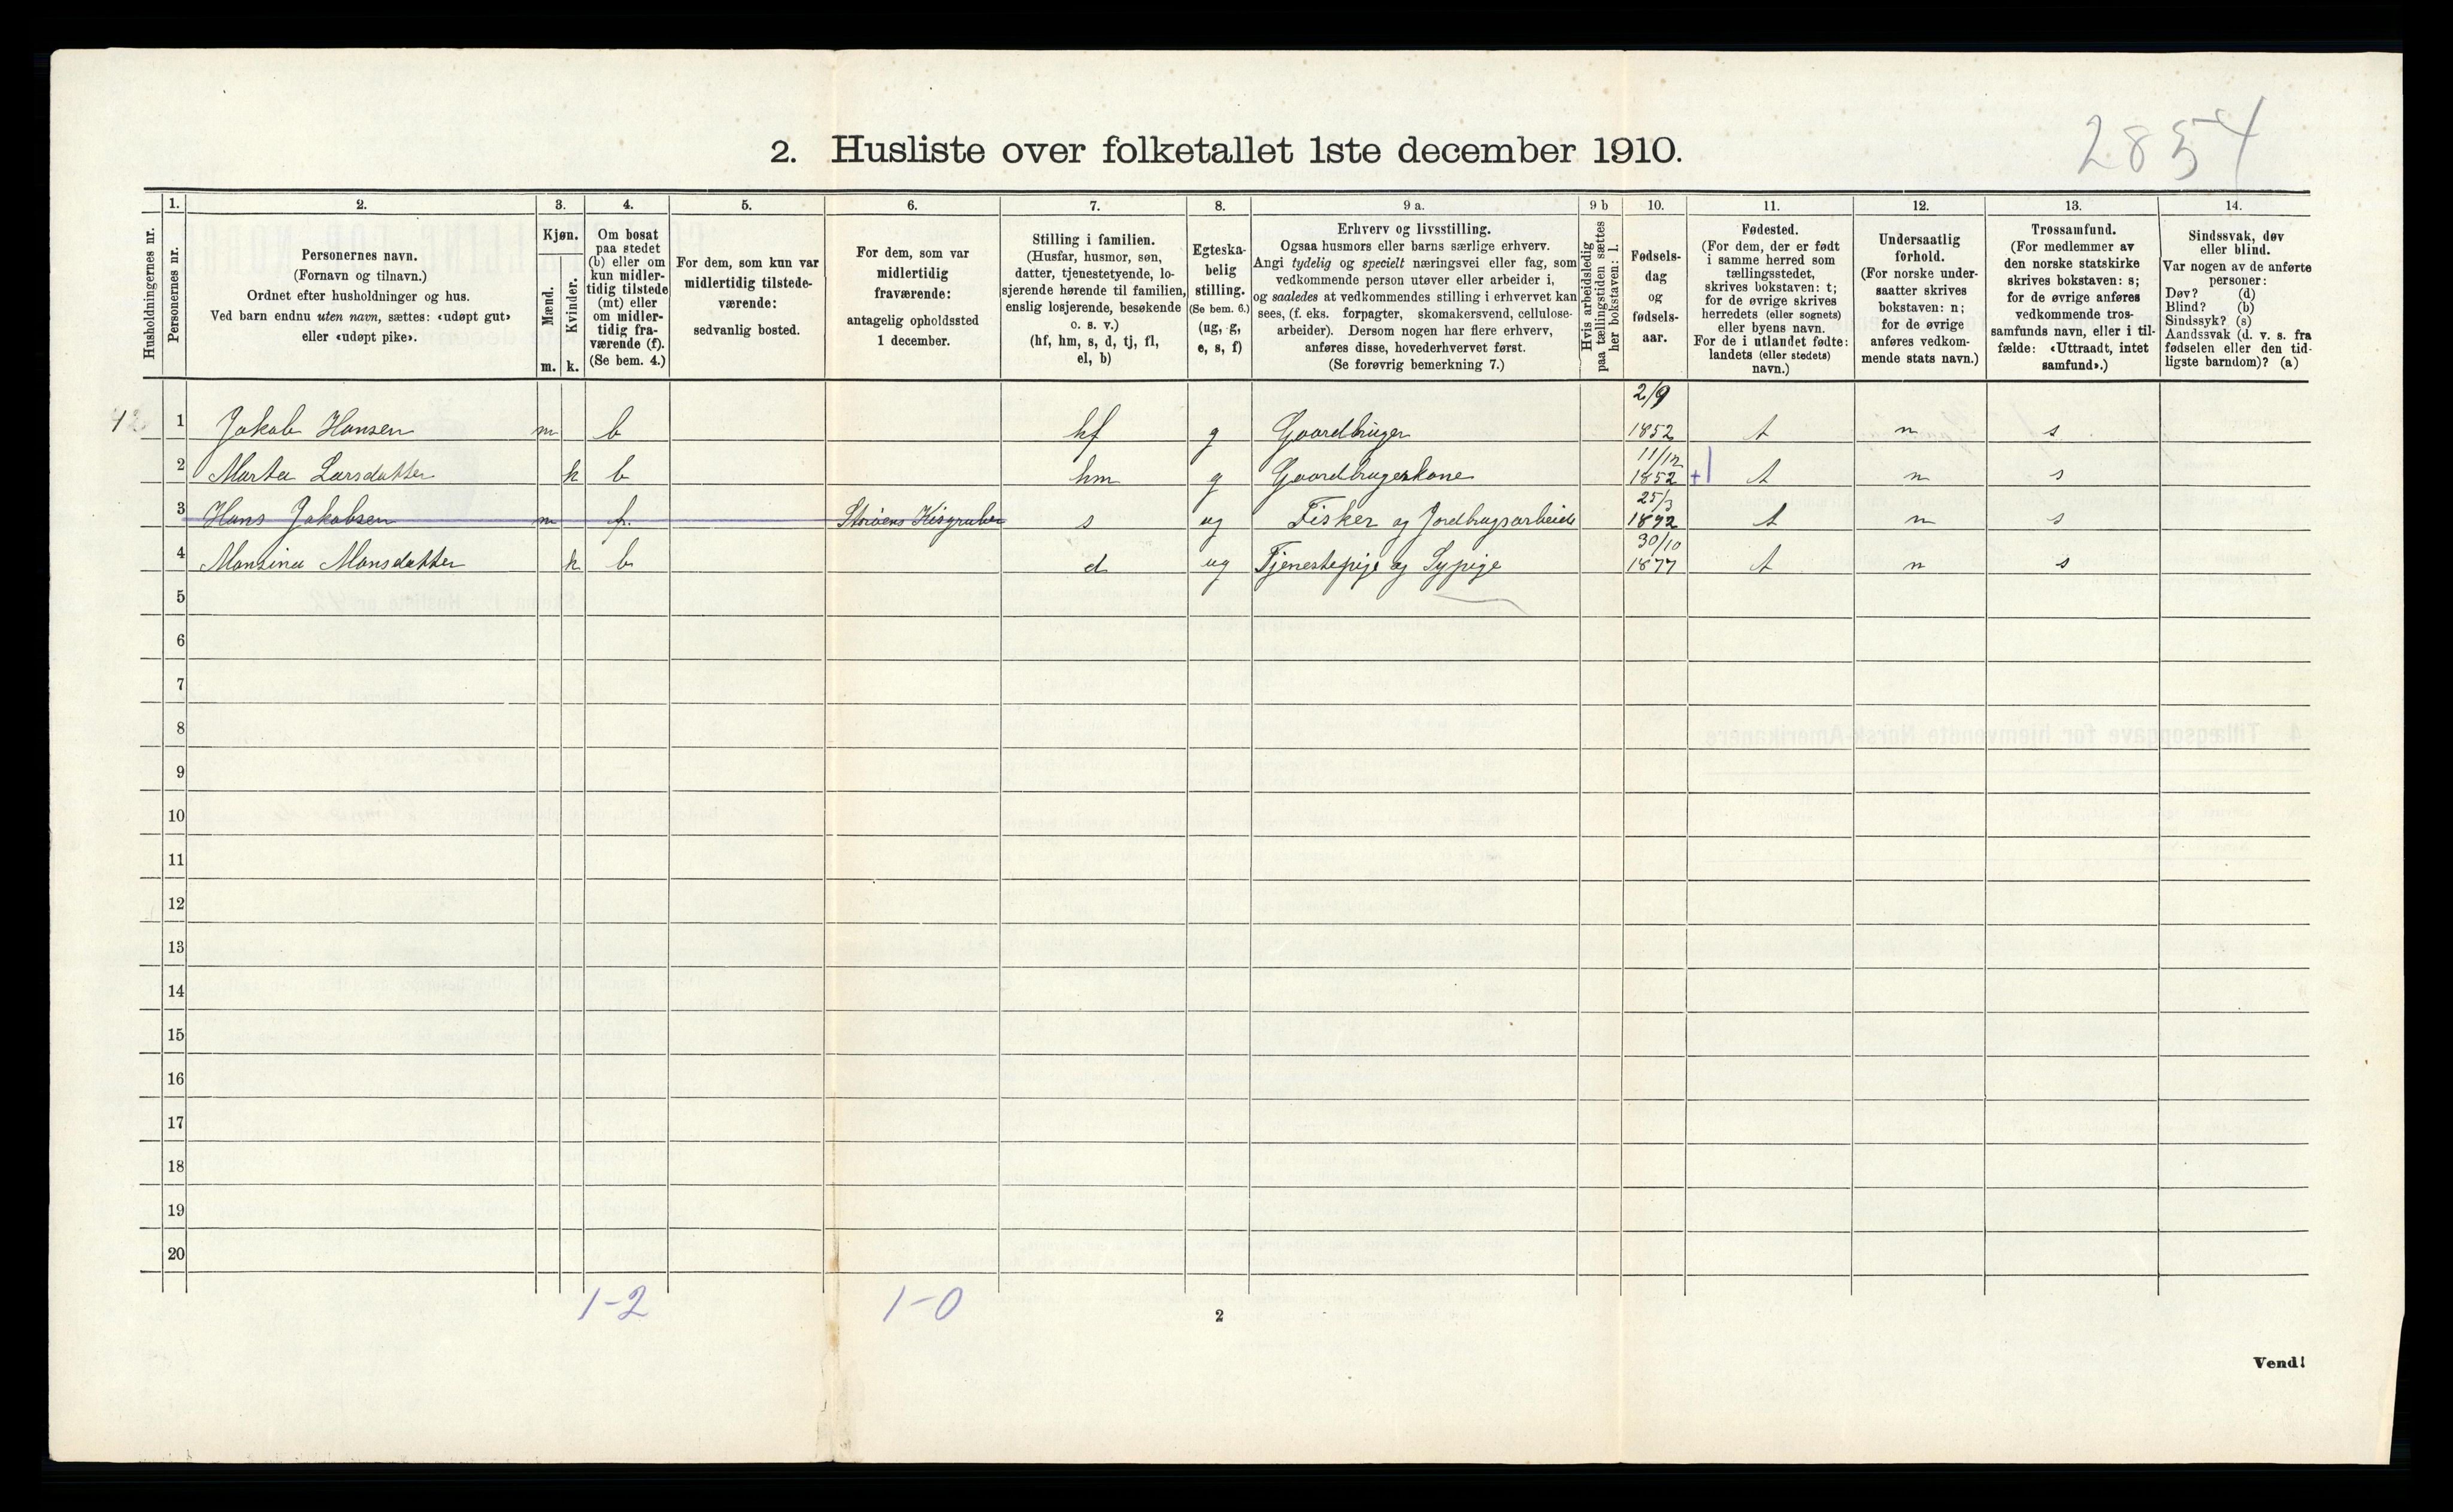 2854
2. Husliste over folketallet 1ste december 1910.
Husholdningernes nr.
1.
Personernes nr.
2.
Personernes navn.
(Fornavn og tilnavn.)
Ordnet efter husholdninger og hus.
Ved barn endnu uten navn, sættes: «udøpt gut»
eller «udøpt pike».
3.
Kjøn.
Mænd.
Kvinder.
m. k.
4.
Om bosat
paa stedet
(b) eller om
kun midler-
tidig tilstede
(mt) eller
om midler-
tidig fra-
værende (f).
(Se bem. 4.)
5.
For dem, som kun var
midlertidig tilstede-
værende:
sedvanlig bosted.
6.
For dem, som var
midlertidig
fraværende:
antagelig opholdssted
1 december.
7.
Stilling i familien.
(Husfar, husmor, søn,
datter, tjenestetyende, lo-
sjerende hørende til familien,
enslig losjerende, besøkende
o. s. v.)
(hf, hm, s, d, tj, fl,
el, b)
8.
Egteska-
belig
stilling.
(Se bem. 6.)
(ug, g,
e, s, f)
9 a.
Erhverv og livsstilling.
Ogsaa husmors eller barns særlige erhverv.
Angi tydelig og specielt næringsvei eller fag, som
vedkommende person utøver eller arbeider i,
og saaledes at vedkommendes stilling i erhvervet kan
sees, (f. eks. forpagter, skomakersvend, cellulose-
arbeider). Dersom nogen har flere erhverv,
anføres disse, hovederhvervet først.
(Se forøvrig bemerkning 7.)
9 b
Hvis arbeidsledig
paa tællingstiden sættes
her bokstaven: l.
10.
Fødsels-
dag
og
fødsels-
aar.
11.
Fødested.
(For dem, der er født
i samme herred som
tællingsstedet,
skrives bokstaven: t;
for de øvrige skrives
herredets (eller sognets)
eller byens navn.
For de i utlandet fødte:
landets (eller stedets)
navn.)
12.
Undersaatlig
forhold.
(For norske under-
saatter skrives
bokstaven: n;
for de øvrige
anføres vedkom-
mende stats navn.)
13.
Trossamfund.
(For medlemmer av
den norske statskirke
skrives bokstaven: s;
for de øvrige anføres
vedkommende tros-
samfunds navn, eller i til-
fælde: «Uttraadt, intet
samfund».)
14.
Sindssvak, døv
eller blind.
Var nogen av de anførte
personer:
Døv? (d)
Blind? (b)
Sindssyk? (s)
Aandssvak (d. v. s. fra
fødselen eller den tid-
ligste barndom)? (a)
2/9
1 Jakob Hansen m b hf g Gaardbruger 1852 t n s
11/12
2 Marta Larsdatter k b hm g Gaardbrugerkone 1852 t n s
25/3
3 Hans Jakobsen m f. Storøens Kisgruber s ug Fisker og Jordbrugsarbeide 1892 t n s
30/10
4 Monsina Monsdatter k b d ug Tjenestepige og Sypige 1877 t n s
5
6
7
8
9
10
11
12
13
14
15
16
17
18
19
20
1-2 1-0
2
Vend!